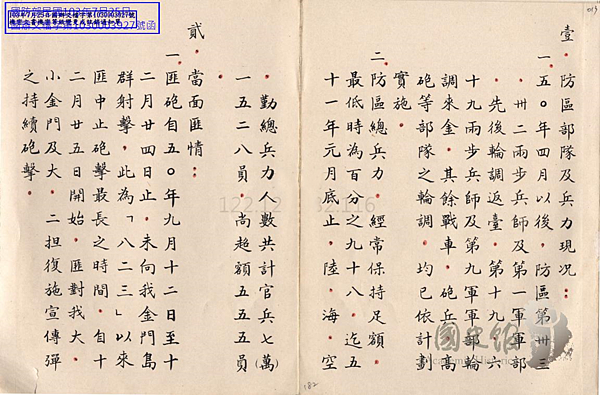 壹、防區部隊及兵力現況:
一、五〇年四月以後,防區第卅三
、卅二兩步兵師及第一軍軍部
,先後輪調返臺。第十九、六
十九兩步兵師及第九軍軍部輪
調來金。其餘戰車、砲兵、高
砲等部隊之輪調,均已依計劃
實施。
二、防區總兵力,經常保持足額。
最低時為百分之九十八。迄五
十一年元月底止,陸、海、空
、勤總兵力人數共計官兵七萬(萬)
一五二八員,尚超額五五五員
。
貳、當面匪情:
一、匪砲自五〇年九月十二日至十
二月廿四日止,未向我金門島
群射擊,此為「八二三」以來
匪中止砲擊最長之時間。自十
二月廿五日開始,匪對我大、
小金門及大、二担復施宣傳彈
之持續砲擊。
182
國史館